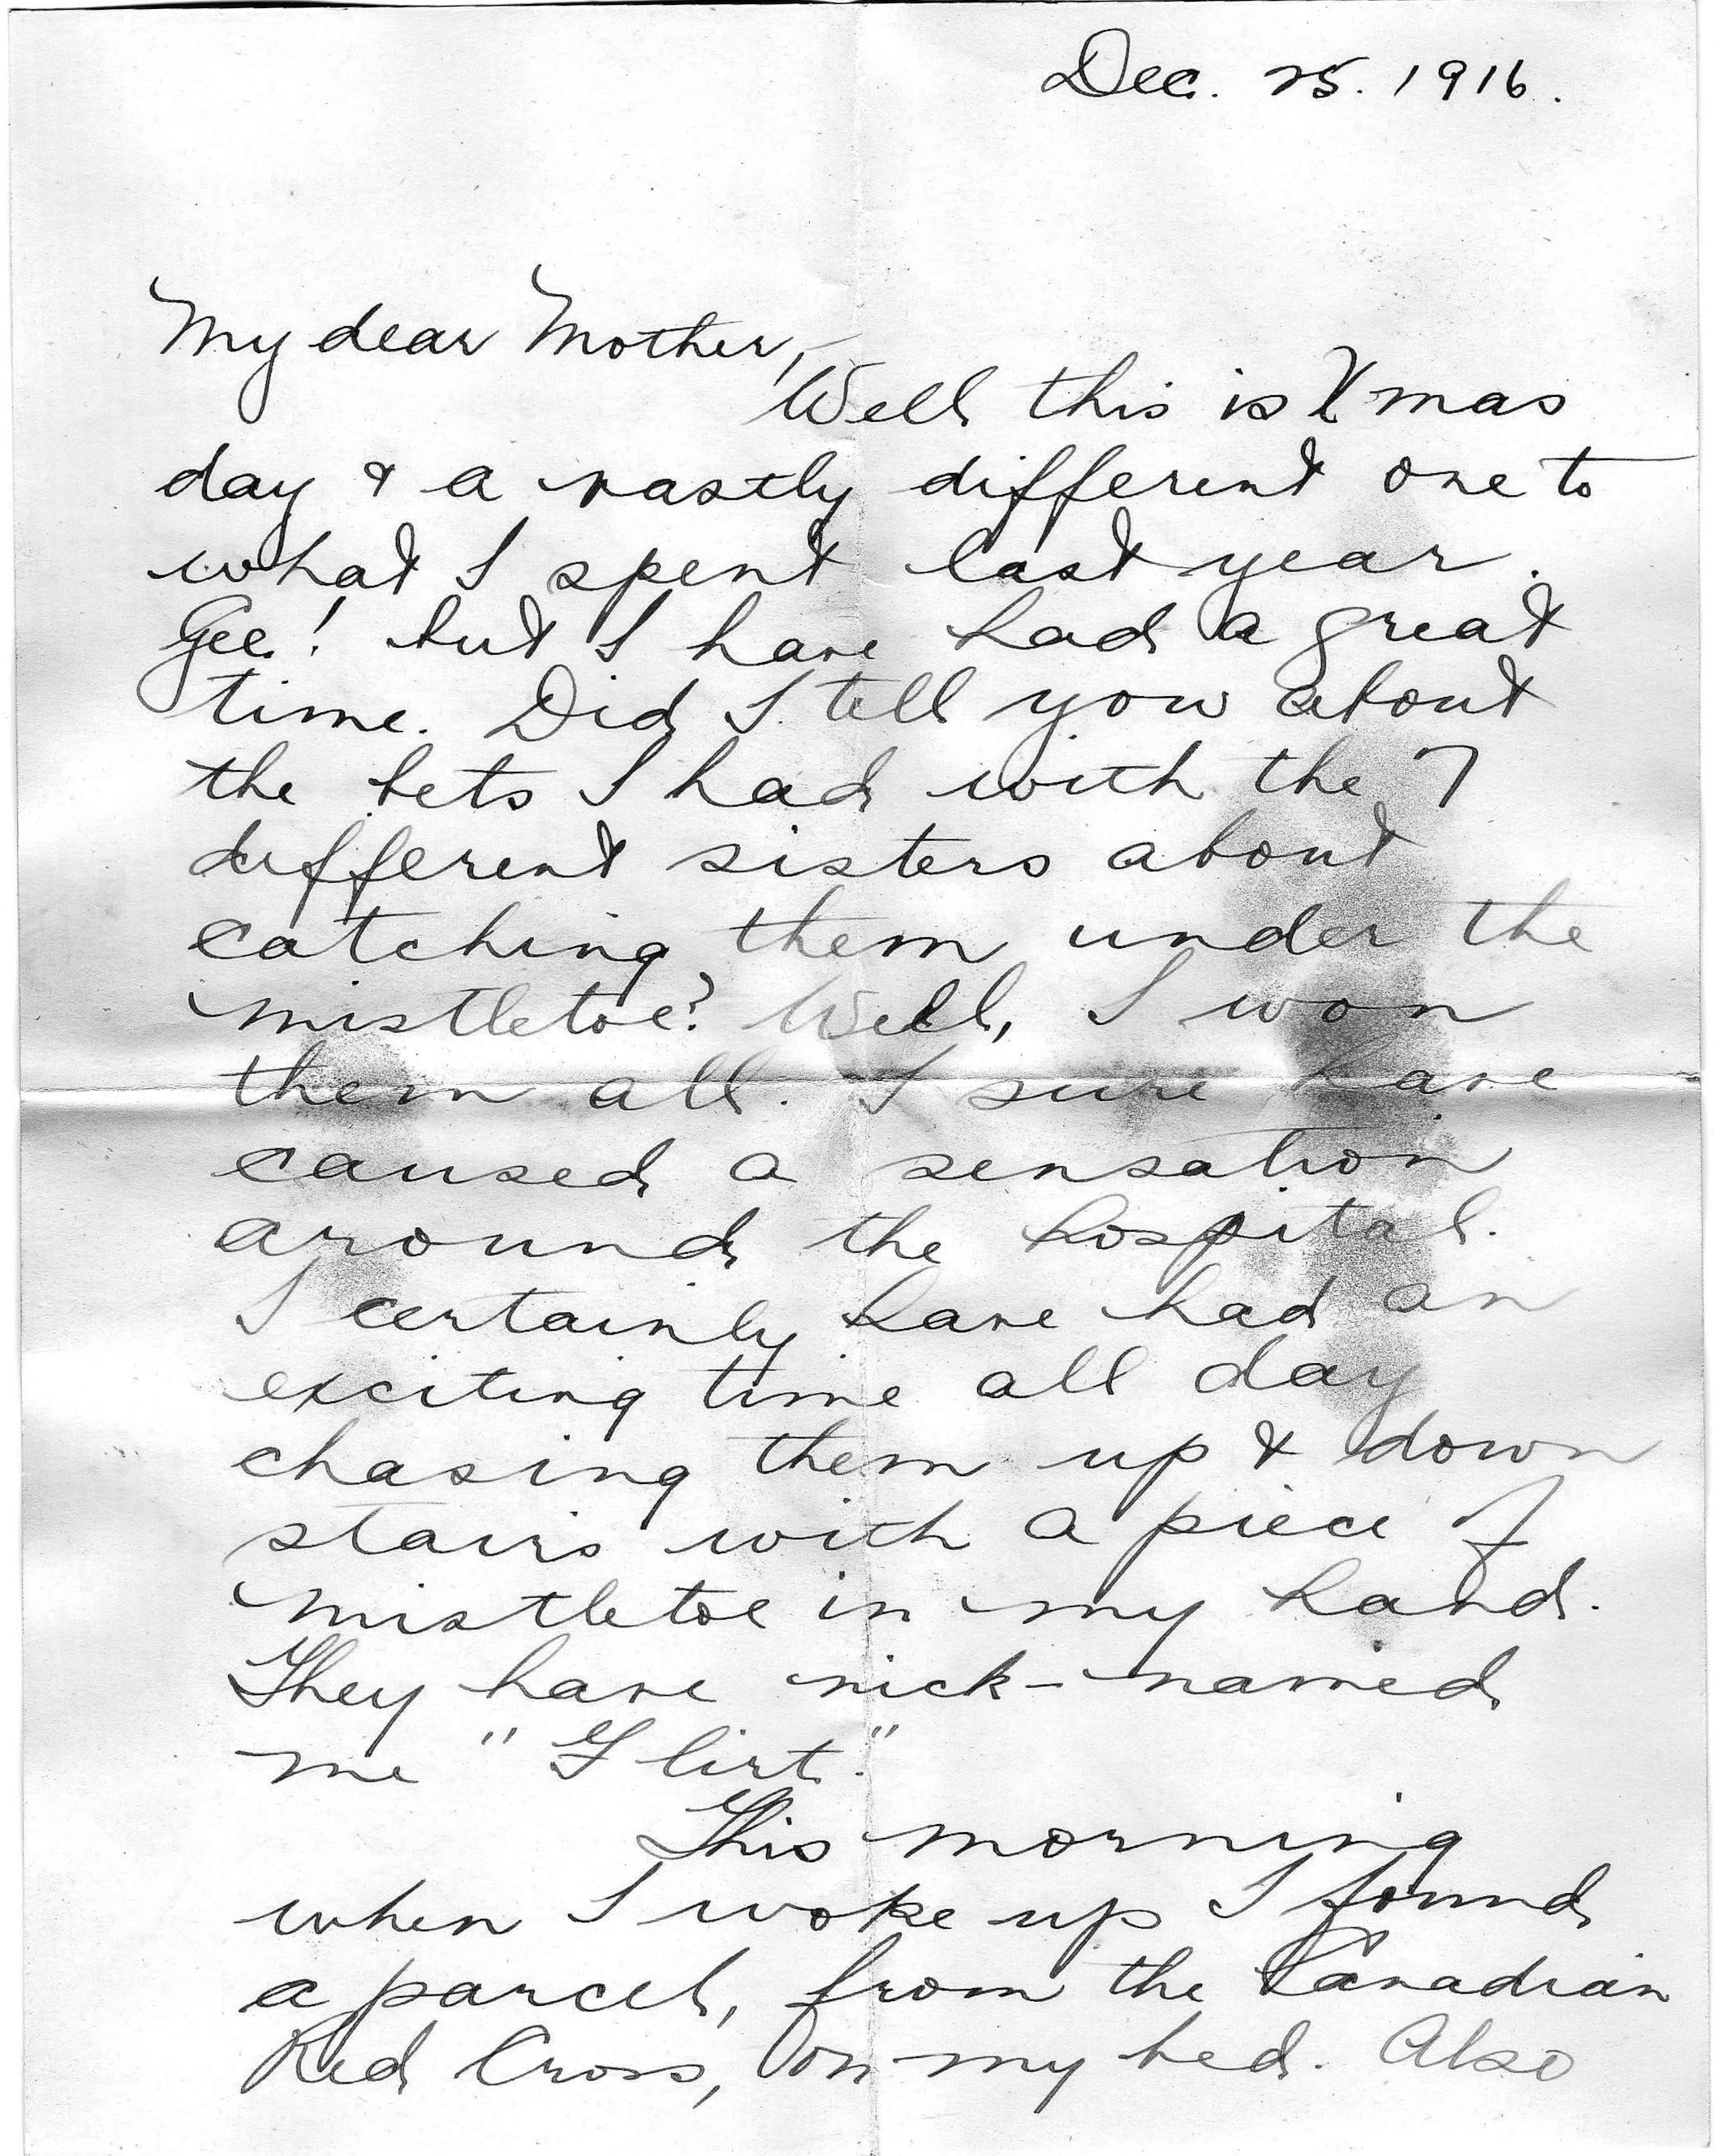 Dec. 25. 1916.
My dear Mother,
Well this is Xmas
day & a vastly different one to
what I spent last year.
Gee! but I have had a great
time. Did I tell you about
the bets I had with the 7
different sisters about
catching them under the
mistletoe? Well, I won
them all. I sure have
caused a sensation
around the hospital.
I certainly have had an
exciting time all day
chasing them up & down
stairs with a piece of
mistletoe in my hand.
They have nick-named
me "Flirt."
This morning
when I woke up I found
a parcel, from the Canadian
Red Cross, on my bed. Also